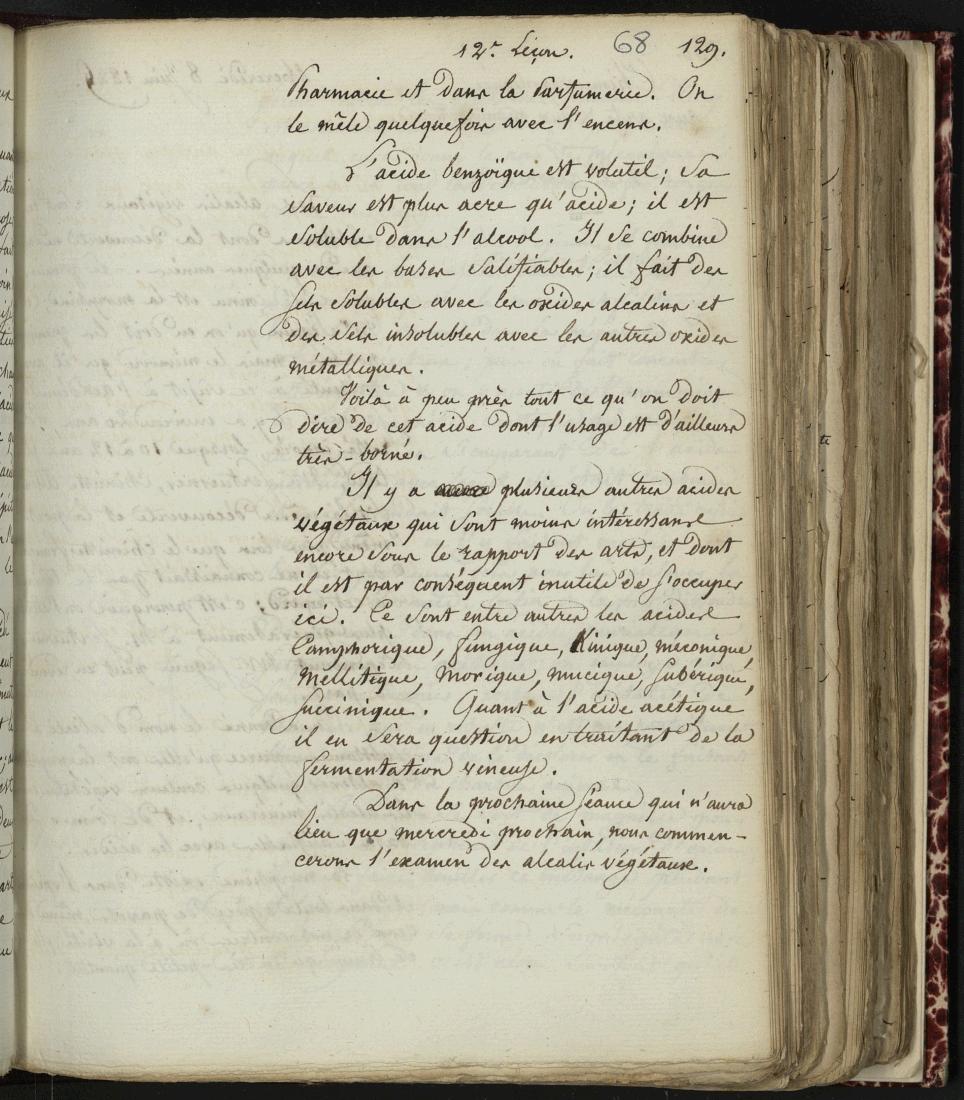 12e. Leçon. 68 129.
Pharmacie et dans la Parfumerie. On
le mêle quelquefois avec l'encens.
L'acide benzoïque est volatil; Sa
Saveur est plus acre qu'acide; il est
Soluble dans l'alcool. Il Se combine
avec les bases Salifiables; il fait des
Sels Solubles avec les oxides alcalins et
des Sels insolubles avec les autres oxides
métalliques.
Voilà à peu près tout ce qu'on doit
dire de cet acide dont l'usage est d'ailleurs
très-borné.
Il y a plusieurs autres acides
végétaux qui Sont moins intéressans
encore Sous le rapport des arts, et dont
il est par conséquent inutile de S'occuper
ici. Ce Sont entre autres les acides
Camphorique, fungique, Kinique, méconique,
Mellitique, Morique, mucique, Subérique,
Succinique. Quant à l'acide acétique
il en Sera question en traitant de la
fermentation vineuse.
Dans la prochaine Séance qui n'aura
lieu que mercredi prochain, nous commen-
cerons l'examen des alcalis végétaux.